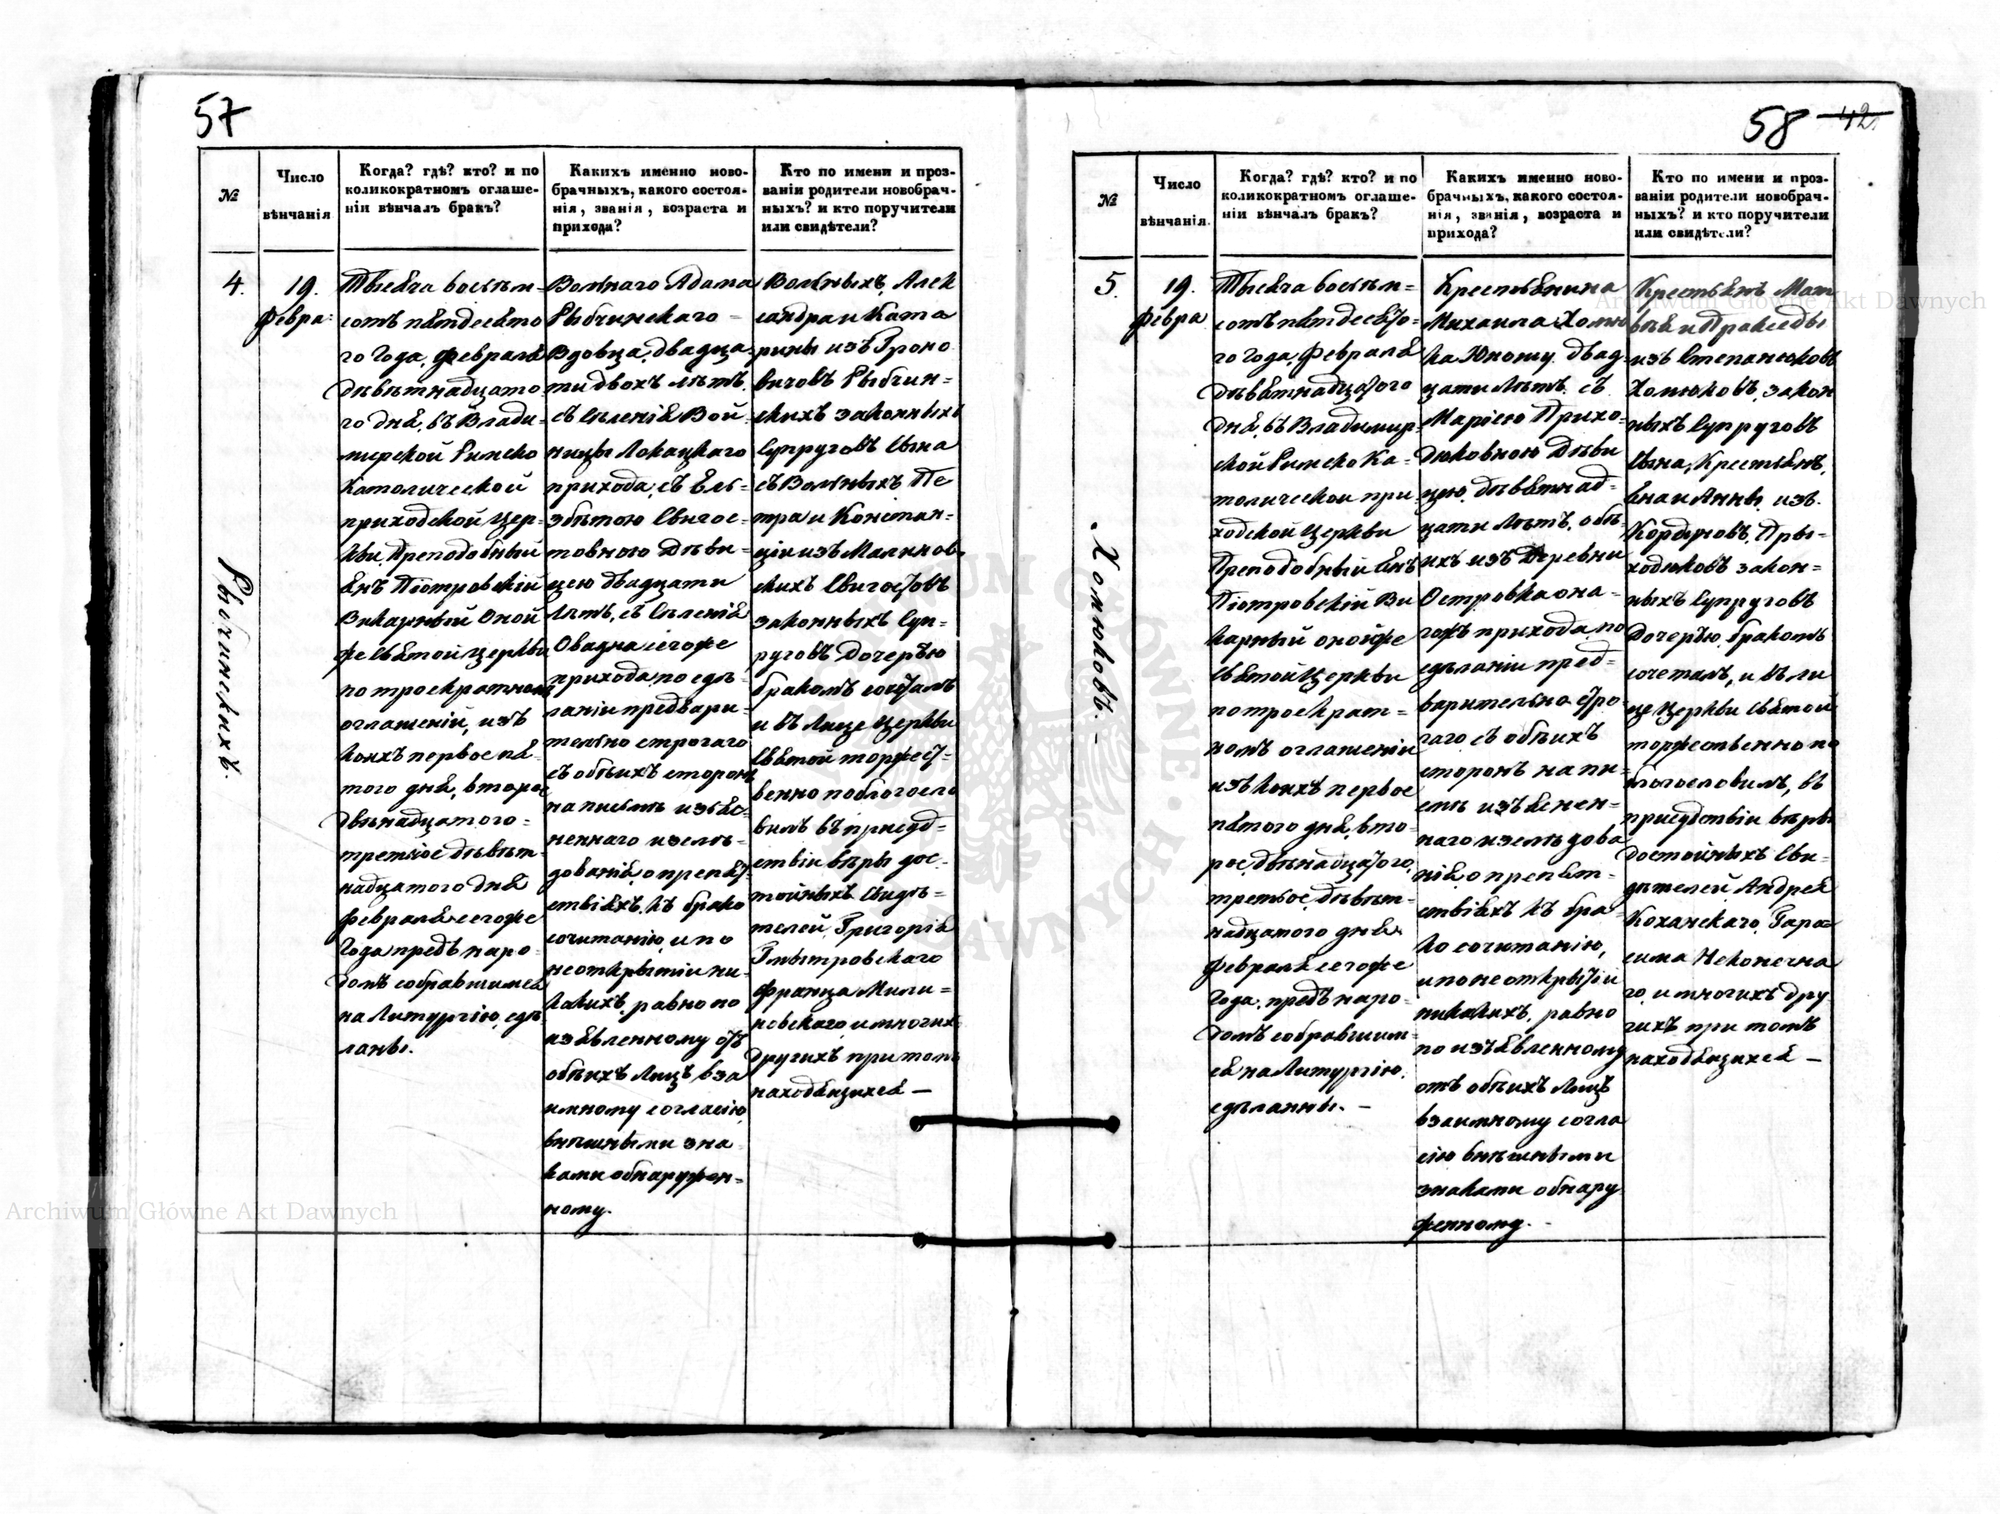 57
№
Число
вѣнчанія
Когда? гдѣ? кто? и по
коликократномъ оглаше-
ніи вѣнчалъ бракъ?
Какихъ именно ново-
брачныхъ, какого состоя-
нія, званія, возраста и
прихода?
Кто по имени и проз-
ваніи родители новобрач-
ныхъ? и кто поручители
или свидѣтели?
4.
Рыбчинскихъ.
19.
Февра:
Тысяча восемь-
сотъ пятдесято
го Года, Февраля
девятнадцато
го дня, въ Влади-
мирской Римско
Католической
приходской Цер-
кви, Преподобный
Янъ Піотровскій
Викарный оной
же святой церкви
по троекратномъ
оглашеніи, изъ
коихъ первое пя-
того дня, второе
двенадцатого-
третіое девят-
надцатого дня
февраля сегоже
Года предъ наро-
домъ собравшимся
на Литургію, сдѣ
ланы.
Вольнаго Адама
Рыбчинскаго –
Вдовца, двадца
ти двохъ лѣтъ,
съ селенія Вой-
ницы Локацкаго
прихода, съ Ель-
збѣтою Свигос-
товною Дѣви-
цею двадцати
лѣтъ, съ селенія
Овадна сегоже
прихода, по сдѣ-
ланіи предвари-
тельно строгаго
съ обѣихъ сторонъ
на письмѣ изъяс-
неннаго изслѣ-
дованія о препят-
ствіяхъ къ брако
сочитанію, и по
неоткрытіи ни-
какихъ, равно по
изъявленному отъ
обѣихъ лицъ вза
имному согласію
внѣшными зна
ками обнаружен-
ному.
Вольныхъ, Алек
сандра и Ката
рины изъ Гроно
вичовъ Рыбчин-
скихъ законныхъ
супруговъ сына
съ Вольныхъ Пе
тра и Констан-
ціи изъ Малинов
скихъ Свигостовъ
законныхъ Суп-
руговъ Дочерью
бракомъ сочеталъ
и въ лице церкви
святой торжест-
венно поблагосло
вилъ въ присуд-
ствіи вѣры дос-
тойныхъ свидѣ-
телей, Григорія
Гмытровскаго
Франца Мали-
новскаго и многих
другихъ при томъ
находящихся –
58 42.
№
Число
вѣнчанія.
Когда? гдѣ? кто? и по
коликократномъ оглаше-
ніи вѣнчалъ бракъ?
Какихъ именно ново-
брачныхъ, какого состоя-
нія, званія, возраста и
прихода?
Кто по имени и проз-
ваніи родители новобрач-
ныхъ? и кто поручители
или свидѣтели?
5.
Холюковъ. –
19.
Февра
Тысяча восемь-
сотъ пятдесято-
го Года, Февраля
девятнадцатого
дня, въ Владимир-
ской Римско Ка-
толической при
ходской Церкви
Преподобный Янъ
Піотровскій Ви
карный онойже
святой Церкви
по троекрат-
номъ оглашеніи
изъ коихъ первое
пятого дня, вто-
рое, двенадцатого,
третьое, девят-
надцатого дня
Февраля сегоже
Года, предъ наро-
домъ собравшим-
ся на Литургію,
сдѣланны. –
Крестьянина
Михаила Холю
ка Юношу, двад-
цати лѣтъ, съ
Маріею Прихо-
дюковною Дѣви
цею, девятнад-
цати лѣтъ, обѣ-
ихъ изъ Деревни
Островка она-
гожъ прихода, по
сдѣланіи пред-
варительно стро
гаго съ обѣихъ
сторонъ на пи-
смѣ изъяснен-
наго изслѣдова
нія о препят-
ствіяхъ къ бра-
ко сочитанію,
и по неоткрытіи
никакихъ, равно
по изъявленному
отъ обѣихъ лицъ
взаимному согла
сію внѣшными
знаками обнару
женному. -
Крестьянъ Мат
вѣя и Праксѣды
изъ Степанюковъ
Холюковъ, закон
ныхъ супруговъ
сына, Крестьянъ,
Яна и Анны, изъ
Кордуновъ, При-
ходюковъ закон-
ныхъ супруговъ
Дочерью, бракомъ
сочеталъ, и въ ли
це Церкви святой
торжественно по
благословилъ, въ
присудствіи вѣры
достойныхъ сви-
дѣтелей, Андрея
Коханскаго, Гара-
сима Неконечна
го, и многихъ дру
гихъ при томъ
находящихся –
Archiwum Główne Akt Dawnych
Archiwum Główne Akt Dawnych
ARCHIWUM GŁÓWNE AKT DAWNYCH